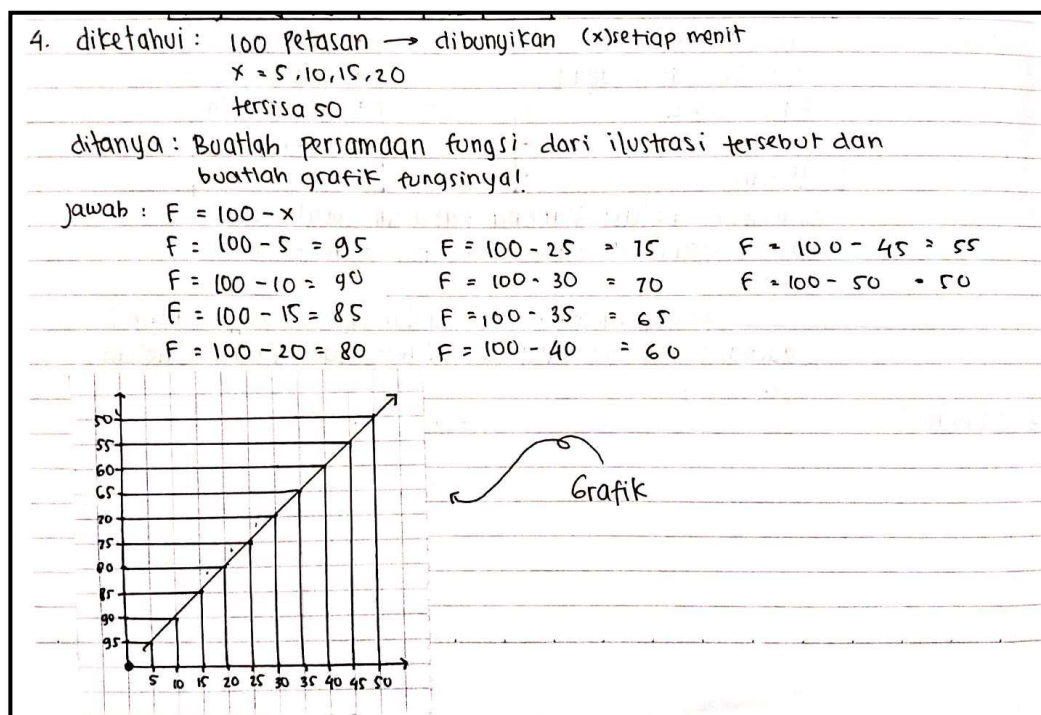 4. diketahui : 100 Petasan → dibunyikan (x)setiap menit
x = 5, 10, 15, 20
tersisa 50
ditanya : Buatlah persamaan fungsi dari ilustrasi tersebut dan
buatlah grafik fungsinya!
jawab : F = 100 - x
F = 100 - 5 = 95 F = 100 - 25 = 75 F = 100 - 45 = 55
F = 100 - 10 = 90 F = 100 - 30 = 70 F = 100 - 50 = 50
F = 100 - 15 = 85 F = 100 - 35 = 65
F = 100 - 20 = 80 F = 100 - 40 = 60
50
55
60
65
70
75
80
85
90
95
5 10 15 20 25 30 35 40 45 50
Grafik